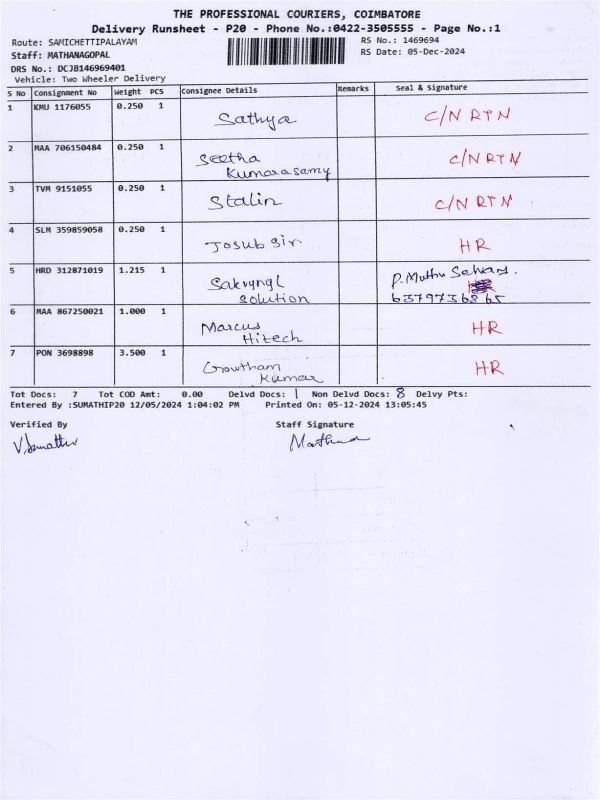 THE PROFESSIONAL COURIERS, COIMBATORE
Delivery Runsheet - P20 - Phone No.:0422-3505555 - Page No.:1
Route: SAMICHETTIPALAYAM RS No.: 1469694
Staff: MATHANAGOPAL RS Date: 05-Dec-2024
DRS No.: DCJB146969401
Vehicle: Two Wheeler Delivery
S No Consignment No Weight PCS Consignee Details Remarks Seal & Signature
1 KMU 1176055 0.250 1 Sathya C/N RTN
2 MAA 706150484 0.250 1 Seetha Kumarasamy C/N RTN
3 TVM 9151055 0.250 1 Stalin C/N RTN
4 SLM 359859058 0.250 1 Josub Sir HR
5 HRD 312871019 1.215 1 solution P. Muthu
6 MAA 867250021 1.000 1 Marcus Hitech HR
7 PON 3698898 3.500 1 Gowtham Kumar HR
Tot Docs: 7 Tot COD Amt: 0.00 Delvd Docs: 1 Non Delvd Docs: 8 Delvy Pts:
Entered By :SUMATHIP20 12/05/2024 1:04:02 PM Printed On: 05-12-2024 13:05:45
Verified By Staff Signature